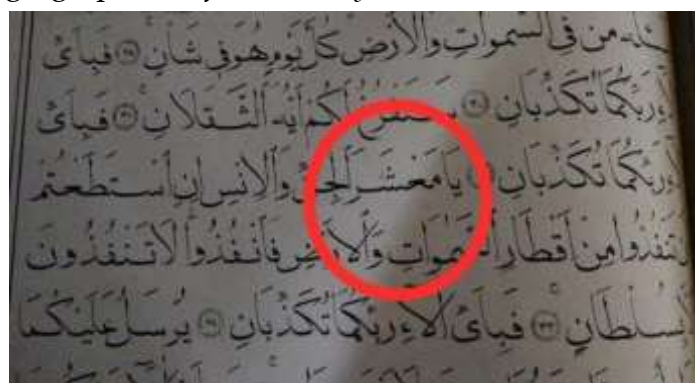 من في السموات والأرض كل يوم هو في شأن ۝٢٩ فبأى
ربكما تكذبان ۝٣٠ سنفرغ لكم أيه الثقلان ۝٣١ فبأى
ربكما تكذبان يا معشر الجن والإنس إن استطعتم
تنفذوا من أقطار السموات والأرض فانفذوا لا تنفذون
بسلطان ۝٣٣ فبأى آلاء ربكما تكذبان ۝٣٤ يرسل عليكما